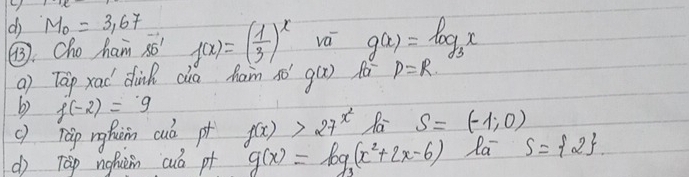 d) M₀ = 3,67
(13). Cho hàm số f(x) = (1/3)^x và g(x) = log₃x
a) Tập xác định của hàm số g(x) là D=R.
b) f(-2) = 9
c) Tập nghiệm của pt f(x) > 27^x² là S = (-1;0)
d) Tập nghiệm của pt g(x) = log₃(x²+2x-6) là S = {2}.